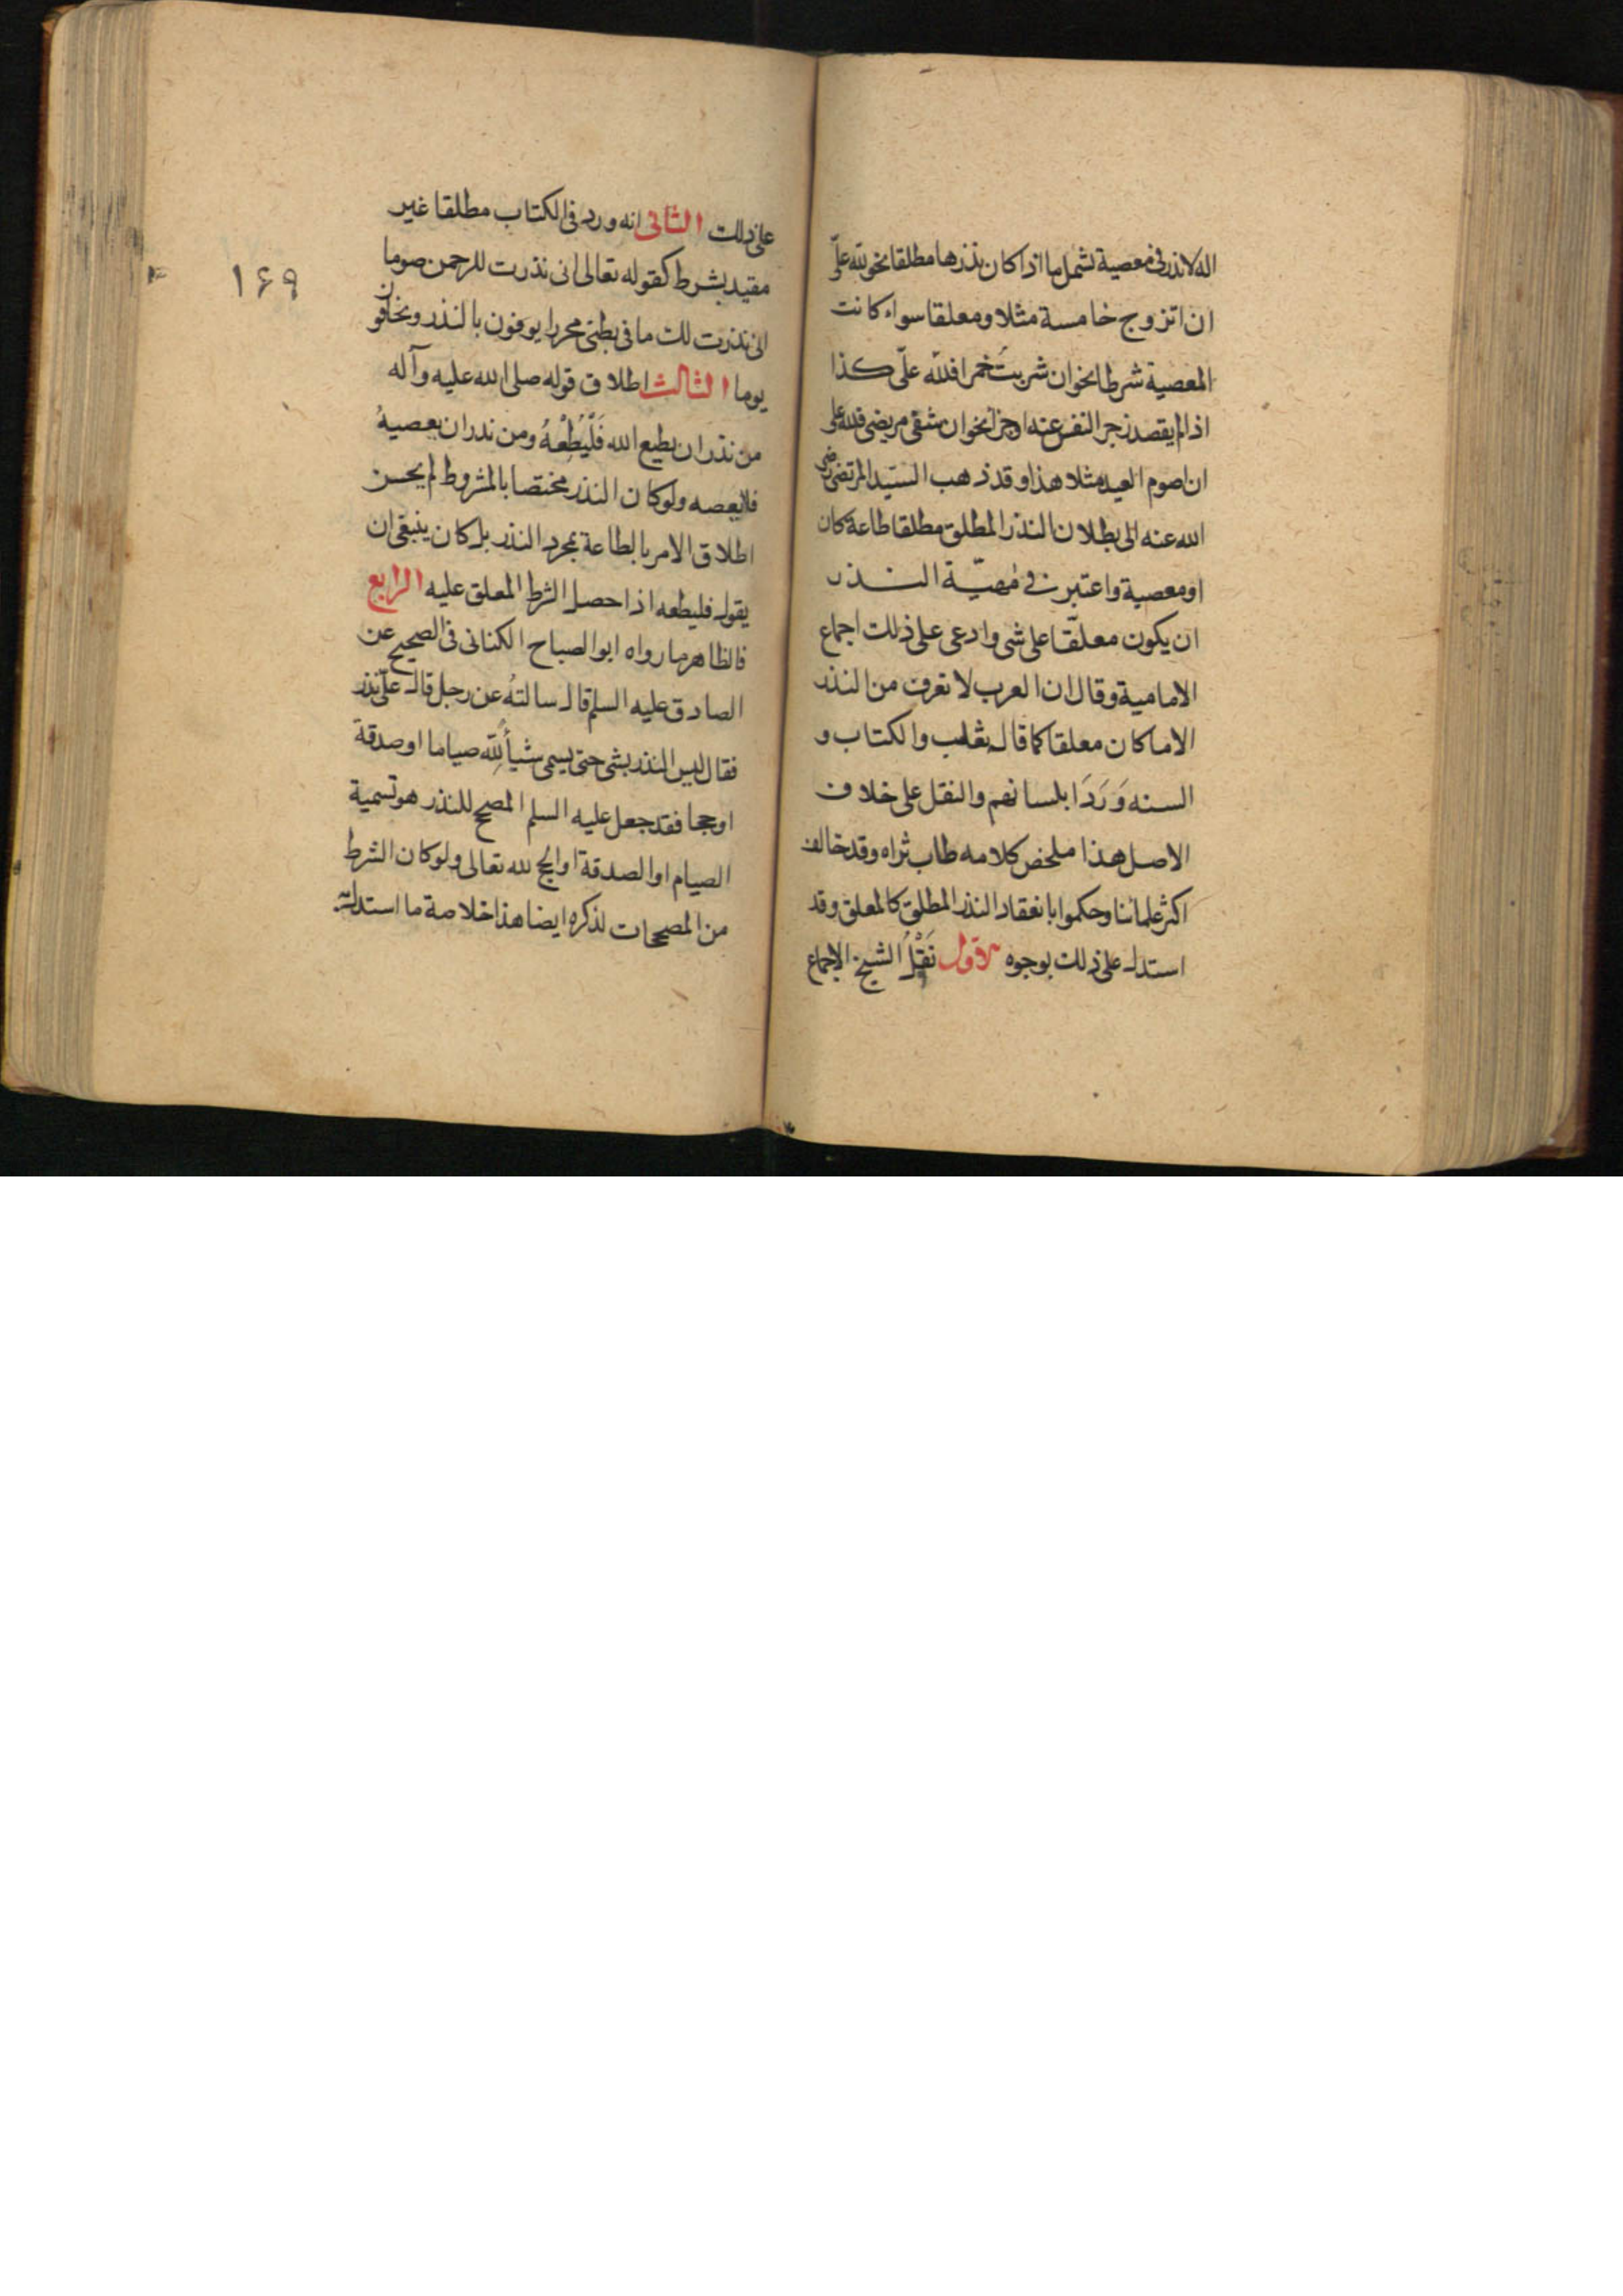 اله لا نذر فى معصية تشمل ما اذا كان نذرها مطلقا نحو لله علىّ
ان اتزوج خامسة مثلا ومعلقا سواء كانت
المعصية شرطا نحو ان شربتُ خمرا فللّه علىّ كذا
اذا لم يقصد زجر النفس عنه او جزآ نحو ان شفى مريضى فلله على
ان اصوم العيد مثلا هذا وقد ذهب السيّد المرتضى رضى
الله عنه الى بطلان النذر المطلق مطلقا طاعة كان
او معصية واعتبر فى مهيّة النذر
ان يكون معلّقا على شى وادعى على ذلك اجماع
الامامية وقال ان العرب لا تعرف من النذر
الا ما كان معلقا كما قال ثعلب والكتاب و
السنه وَرَدَا بلسانهم والنقل على خلاف
الاصل هذا ملخص كلامه طاب ثراه وقد خالف
اكثر علمائنا وحكموا بانعقاد النذر المطلق كالمعلق وقد
استدل على ذلك بوجوه الاول نَقْلُ الشيخ الاجماع
على ذلك الثانى انه ورد فى الكتاب مطلقا غير
مقيد بشرط كقوله تعالى انى نذرت للرحمن صوما
انى نذرت لك ما فى بطنى محررا يوفون بالنذر ويخافون
يوما الثالث اطلاق قوله صلى الله عليه وآله
من نذر ان يطيع الله فَلْيُطِعْهُ ومن نذر ان يعصيهُ
فلا يعصه ولو كان النذر مختصا بالمشروط لم يحسن
اطلاق الامر بالطاعة بمجرد النذر بل كان ينبغى ان
يقول فليطعه اذا حصل الشرط المعلق عليه الرابع
فالظاهر ما رواه ابو الصباح الكنانى فى الصحيح عن
الصادق عليه السلم قال سالتهُ عن رجل قال علىّ نذر
فقال ليس النذر بشى حتى يسمى شيأً للّه صياما او صدقة
او حجا فقد جعل عليه السلم المصحح للنذر هو تسمية
الصيام او الصدقة او الحج لله تعالى ولو كان الشرط
من المصححات لذكره ايضا هذا خلاصة ما استدل به
۱۶۹